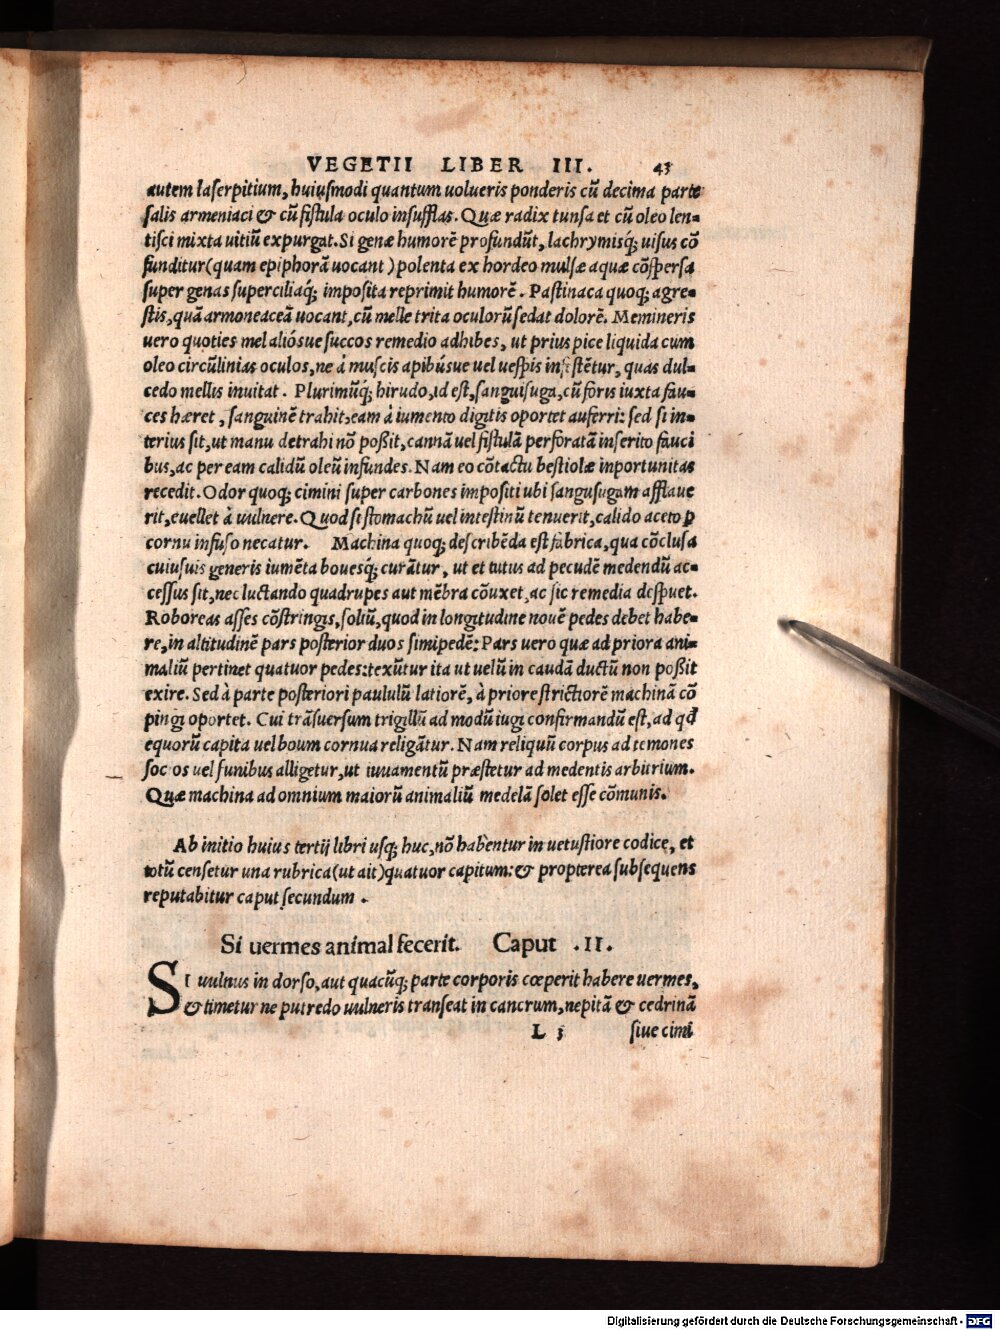 VEGETII LIBER III. 43
autem laserpitium, huiusmodi quantum uolueris ponderis cũ decima parte
salis armeniaci & cũ fistula oculo insufflas. Quæ radix tunsa et cũ oleo len-
tisci mixta uitiũ expurgat. Si genæ humorẽ profundũt, lachrymisq; uisus cõ
funditur (quam epiphorã uocant) polenta ex hordeo mulsæ aquæ cõspersa
super genas superciliaq; imposita reprimit humorẽ. Pastinaca quoq; agre-
stis, quã armoneaceã uocant, cũ melle trita oculorũ sedat dolorẽ. Memineris
uero quoties mel aliósue succos remedio adhibes, ut prius pice liquida cum
oleo circũlinias oculos, ne à muscis apibúsue uel uespis infestẽtur, quas dul-
cedo mellis inuitat. Plurimũq; hirudo, id est, sanguisuga, cũ foris iuxta fau-
ces hæret, sanguinẽ trahit, eam à iumento digitis oportet auferri: sed si in-
terius sit, ut manu detrahi nõ poßit, cannã uel fistulã perforatã inserito fauci
bus, ac per eam calidũ oleũ infundes. Nam eo cõtactu bestiolæ inportunitas
recedit. Odor quoq; cimini super carbones impositi ubi sangusugam afflaue
rit, euellet à uulnere. Quod si stomachũ uel intestinũ tenuerit, calido aceto ꝑ
cornu infuso necatur. Machina quoq; describẽda est fabrica, qua cõclusa
cuiusuis generis iumẽta bouesq; curãtur, ut et tutus ad pecudẽ medendũ ac-
cessus sit, nec luctando quadrupes aut mẽbra cõuxet, ac sic remedia despuet.
Roboreas asses cõstringis, soliũ, quod in longitudine nouẽ pedes debet habe-
re, in altitudinẽ pars posterior duos simipedẽ: Pars uero quæ ad priora ani-
maliũ pertinet quatuor pedes: texũtur ita ut uelũ in caudã ductũ non poßit
exire. Sed à parte posteriori paululũ latiorẽ, à priore strictiorẽ machinã cõ
pingi oportet. Cui trãsuersum trigillũ ad modũ iugi confirmandũ est, ad qđ
equorũ capita uel boum cornua religãtur. Nam reliquũ corpus ad temones
soc os uel funibus alligetur, ut iuuamentũ præstetur ad medentis arbitrium.
Quæ machina ad omnium maiorũ animaliũ medelã solet esse cõmunis.
Ab initio huius tertij libri usq; huc, nõ habentur in uetustiore codice, et
totũ censetur una rubrica (ut ait) quatuor capitum: & propterea subsequens
reputabitur caput secundum.
Si uermes animal fecerit. Caput .II.
SI uulnus in dorso, aut quacũq; parte corporis cœperit habere uermes,
& timetur ne putredo uulneris transeat in cancrum, nepitã & cedrinã
L 3 siue cimi
Digitalisierung gefördert durch die Deutsche Forschungsgemeinschaft - DFG